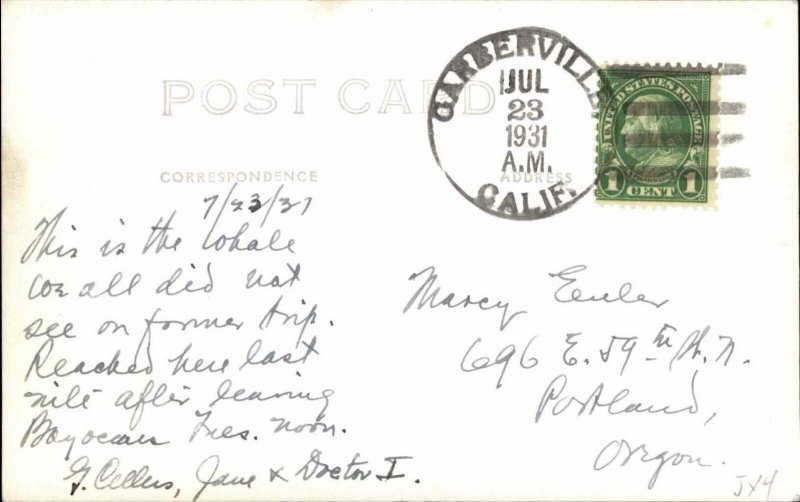 POST CARD
CORRESPONDENCE
ADDRESS
GARBERVILLE
JUL
23
1931
A.M.
CALIF.
UNITED STATES POSTAGE
1 CENT 1
7/23/31
This is the whale
we all did not
see on former trip.
Reached here last
nite after leaving
Bayocean Tues. noon.
G. Cellers, Jane & Doctor I.
Marcy
696 E. 59th St. N.
Portland,
Oregon.
JX4